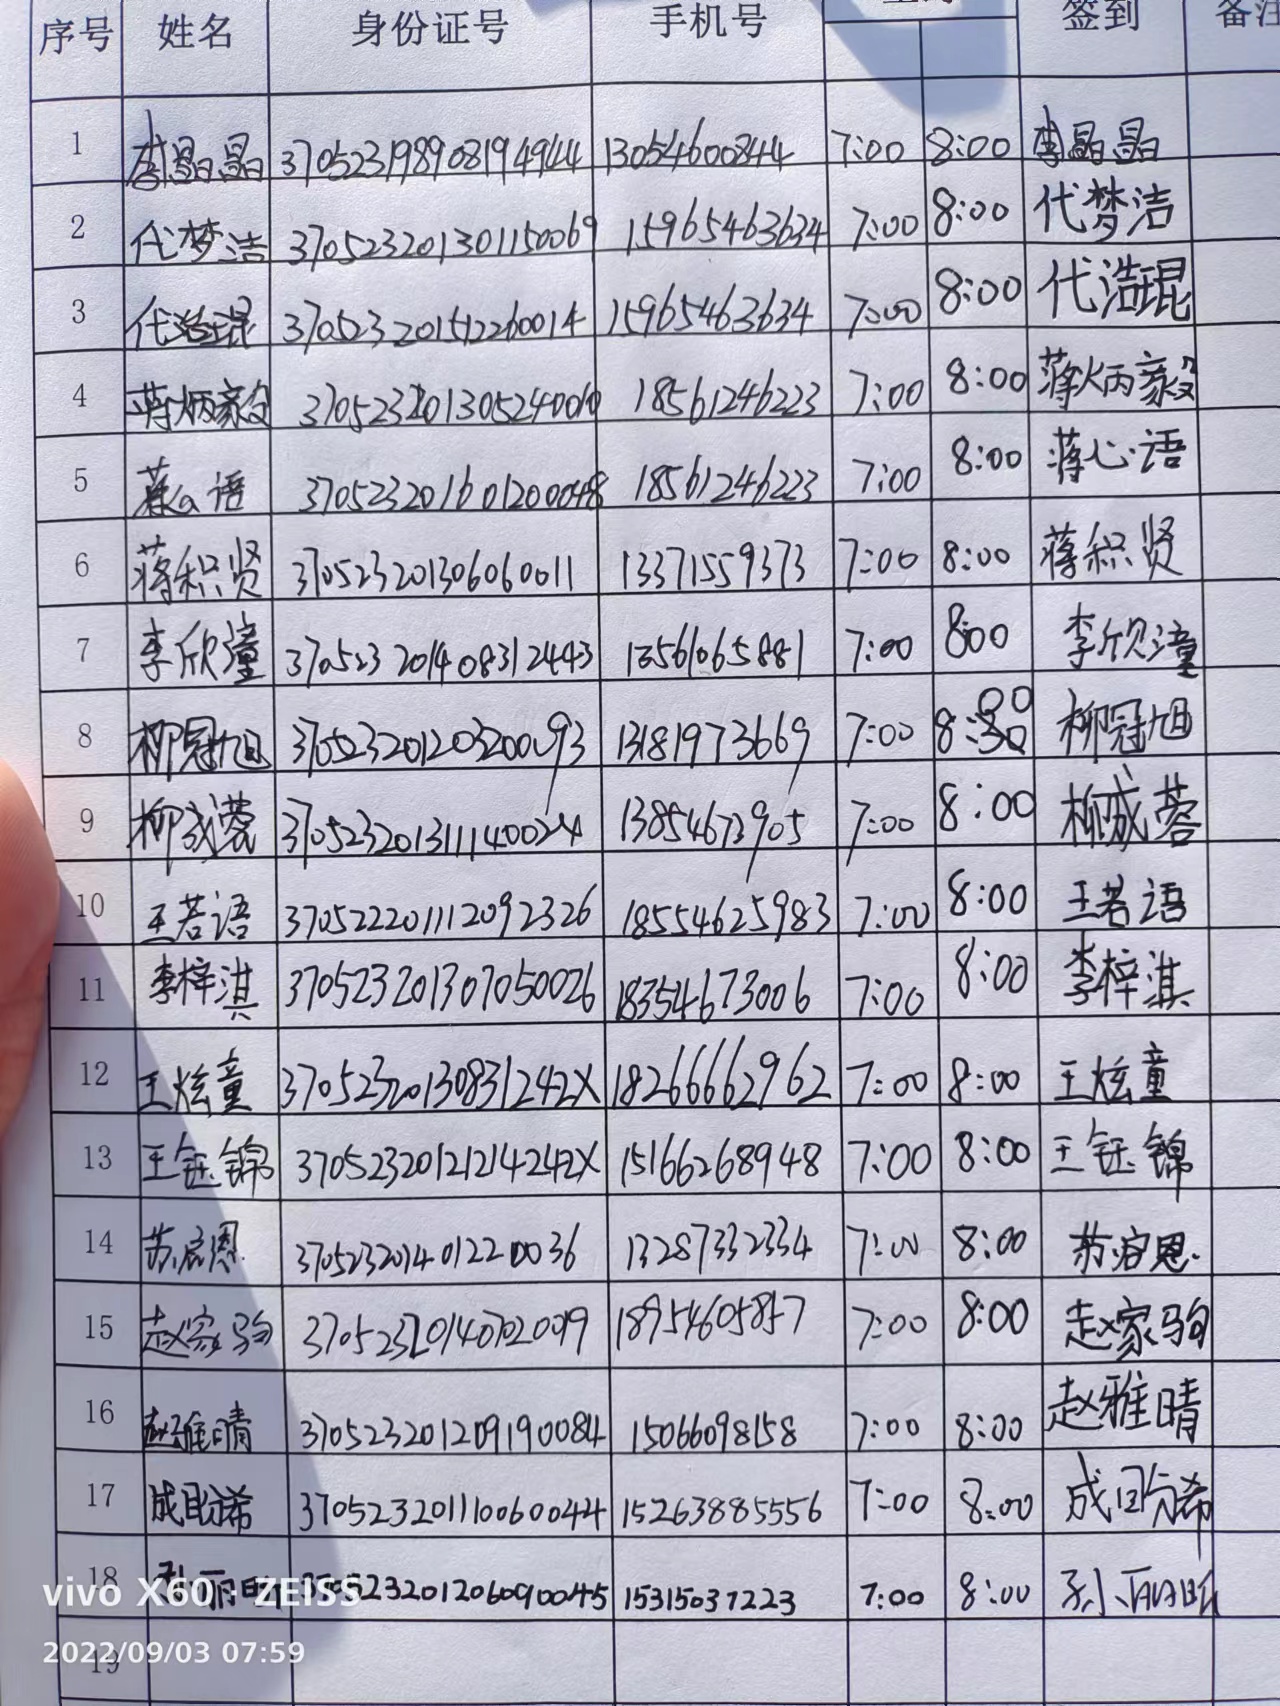 序号 姓名 身份证号 手机号 签到
1 李晶晶 370523198908194944 13054600844 7:00 8:00 李晶晶
2 代梦洁 370523201301150069 15965463634 7:00 8:00 代梦洁
3 代浩琨 370523201512260014 15965463634 7:00 8:00 代浩琨
4 蒋炳毅 18561246223 7:00 8:00 蒋炳毅
5 蒋心语 370523201601200048 18561246223 7:00 8:00 蒋心语
6 蒋积贤 370523201306060011 13371559373 7:00 8:00 蒋积贤
7 李欣潼 370523201408312443 13561065881 7:00 8:00 李欣潼
8 柳冠旭 370523201203200093 13181973669 7:00 8:00 柳冠旭
9 柳成蓉 13854673905 7:00 8:00 柳成蓉
10 王若语 370522201112092326 18554625983 7:00 8:00 王若语
11 李梓淇 370523201307050026 18354673006 7:00 8:00 李梓淇
12 王炫童 37052320130831242X 18266662962 7:00 8:00 王炫童
13 王钰锦 37052320121214242X 15166268948 7:00 8:00 王钰锦
14 370523201401220036 13287332334 7:00 8:00
15 赵家驹 370523201407020019 18954605857 7:00 8:00 赵家驹
16 赵雅晴 370523201209190084 15066098158 7:00 8:00 赵雅晴
17 370523201110060044 15263885556 7:00 8:00
18 15315037223 7:00 8:00
vivo X60 · ZEISS
2022/09/03 07:59
19